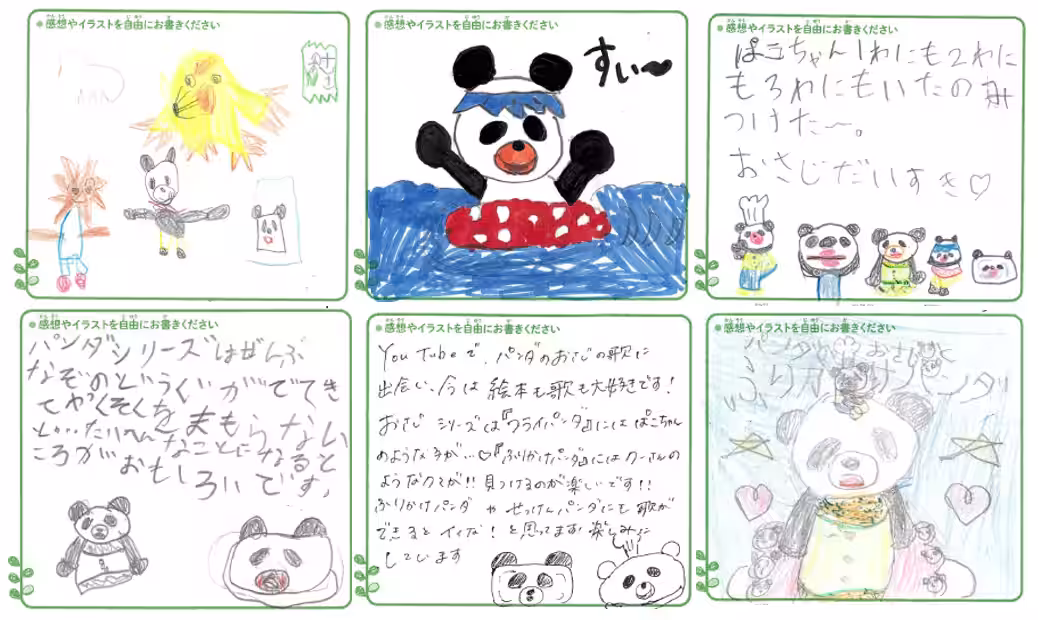 感想やイラストを自由にお書きください
感想やイラストを自由にお書きください
すい〜
感想やイラストを自由にお書きください
ぱこちゃん1わにも2わに
も3わにもいたの み
つけた〜。
おさじだいすき♡
感想やイラストを自由にお書きください
パンダシリーズはぜんぶ
なぞのどうぐがでてき
てやくそくをまもらない
と…たいへんなことになると
ころがおもしろいです。
感想やイラストを自由にお書きください
YouTubeで、パンダのおさじの歌に
出会い、今は絵本も歌も大好きです!
おさじシリーズは『フライパンダ』にはぱこちゃん
のような子が…♡『ふりかけパンダ』にはクーさんの
ようなクマが!!見つけるのが楽しいです!!
ふりかけパンダやせっけんパンダにも歌が
できるとイイな!と思ってます。楽しみに
しています
感想やイラストを自由にお書きください
パンダのおさじと
ふりかけパンダ